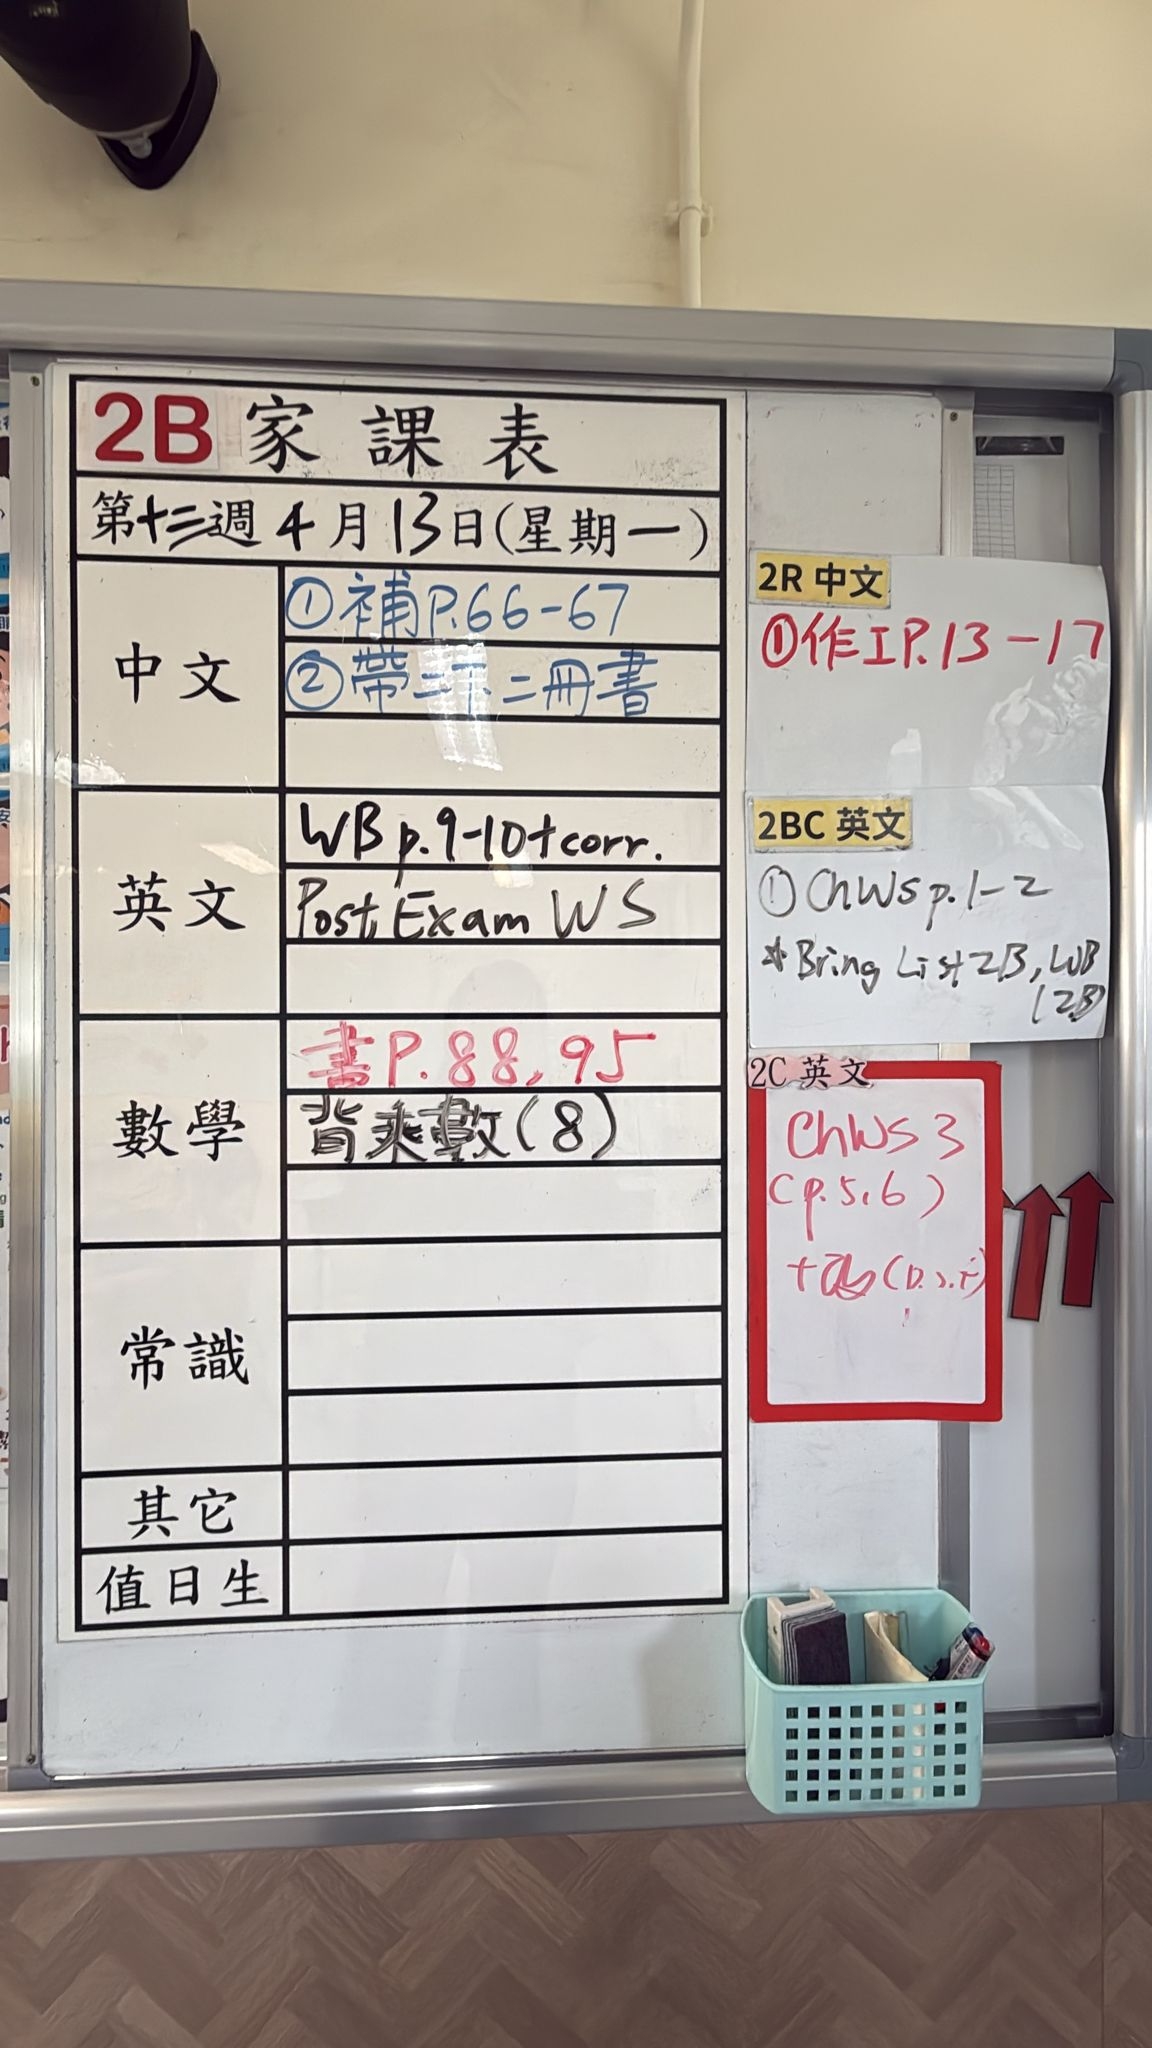 2B 家課表
第十二週 4月13日(星期一)
中文
①補P.66-67
②帶二下二冊書
英文
WB p.9-10+corr.
Post Exam WS
數學
書P.88,95
背乘數(8)
常識
其它
值日生
2R 中文
①作工P.13-17
2BC 英文
①ChWs p.1-2
*Bring List 2B, WB
(2B)
2C 英文
ChWs 3
(p.5,6)